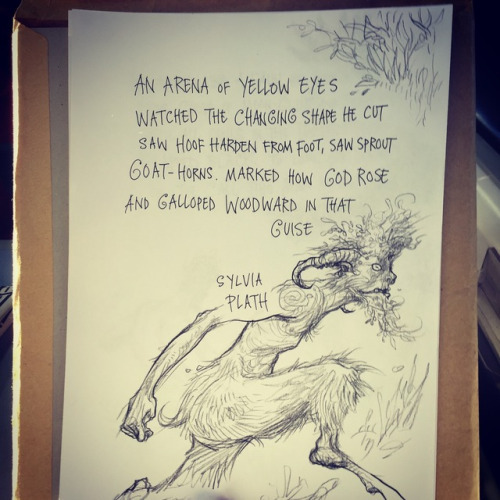 AN ARENA OF YELLOW EYES
WATCHED THE CHANGING SHAPE HE CUT
SAW HOOF HARDEN FROM FOOT, SAW SPROUT
GOAT-HORNS. MARKED HOW GOD ROSE
AND GALLOPED WOODWARD IN THAT
GUISE
SYLVIA
PLATH